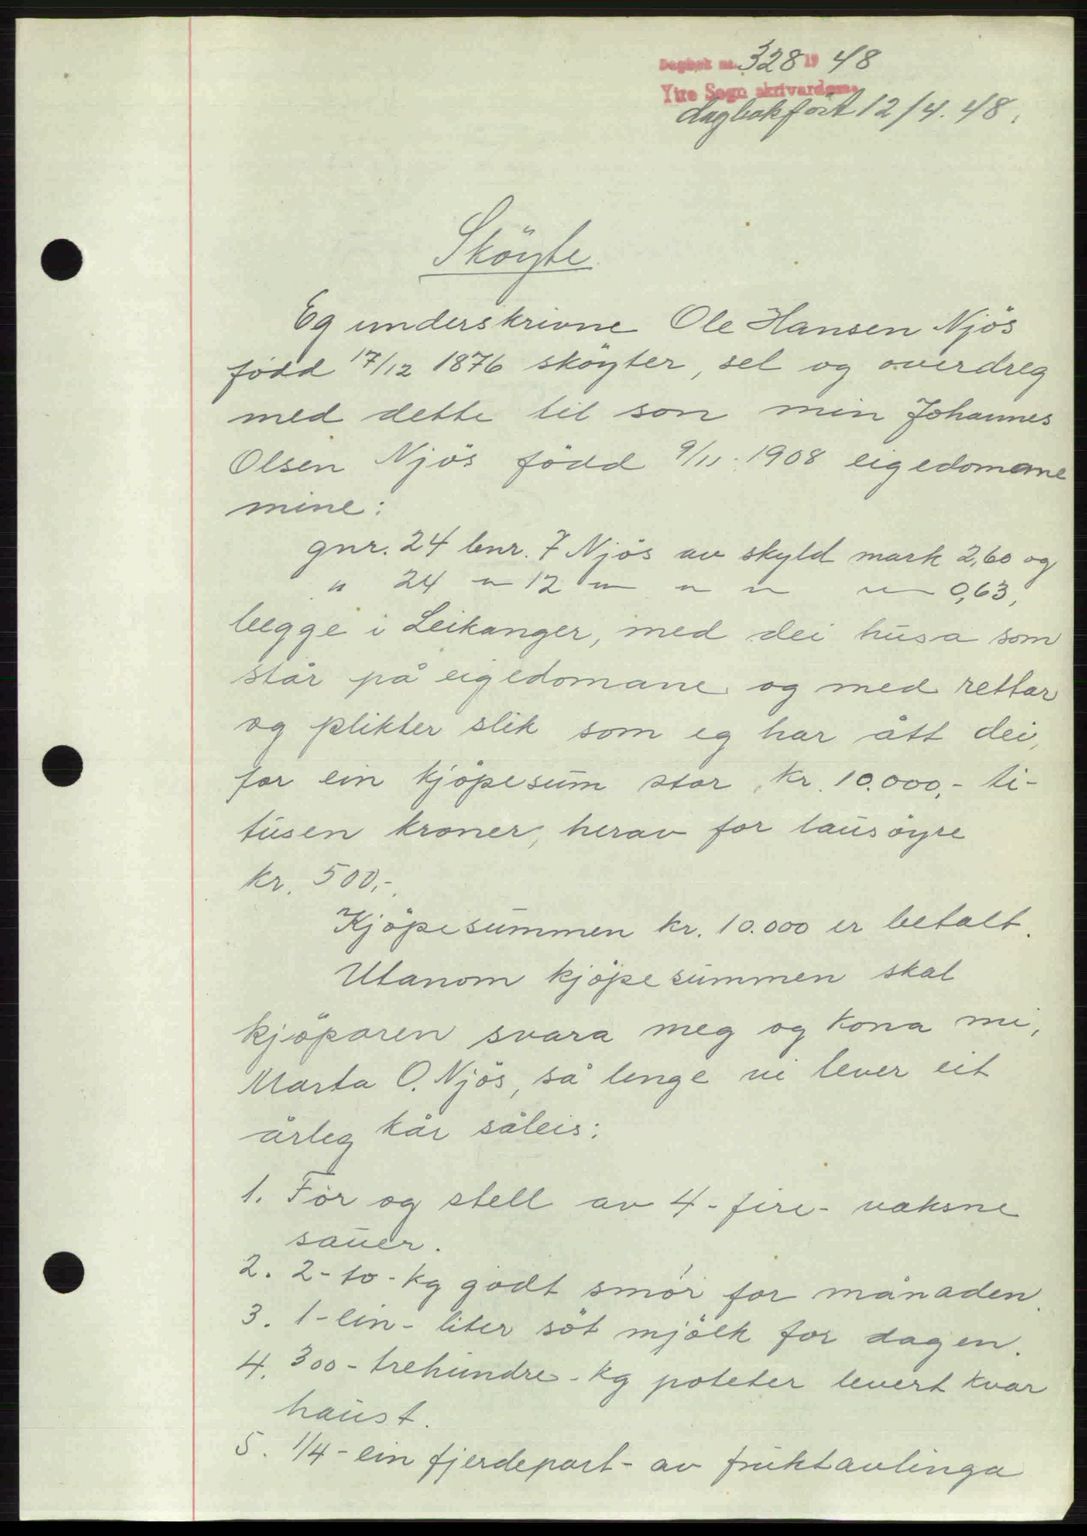 Dagbok nr. 328 19 48
Ytre Sogn skrivardøme
dagbokført 12/4.48.
Sköyte
Eg underskrivne Ole Hansen Njös
född 17/12 1876 sköyter, sel og overdreg
med dette til son min Johannes
Olsen Njös född 9/11. 1908 eigedomane
mine:
gnr. 24 bnr. 7 Njös av skyld mark 2,60 og
" 24 " 12 " " " " 0,63,
begge i Leikanger, med dei husa som
står på eigedomane og med rettar
og plikter slik som eg har ått dei,
for ein kjöpesum stor kr. 10.000,- ti-
tusen kroner, herav for lausöyre
kr. 500,-.
Kjöpesummen kr. 10.000 er betalt.
Utanom kjöpesummen skal
kjöparen svara meg og kona mi,
Marta O. Njös, så lenge vi lever eit
årleg kår såleis:
1. Fór og stell av 4-fire- vaksne
sauer.
2. 2-to-kg godt smör for månaden.
3. 1-ein- liter söt mjölk for dagen.
4. 300-trehundre-kg poteter levert kvar
haust.
5. 1/4-ein fjerdepart- av fruktavlinga